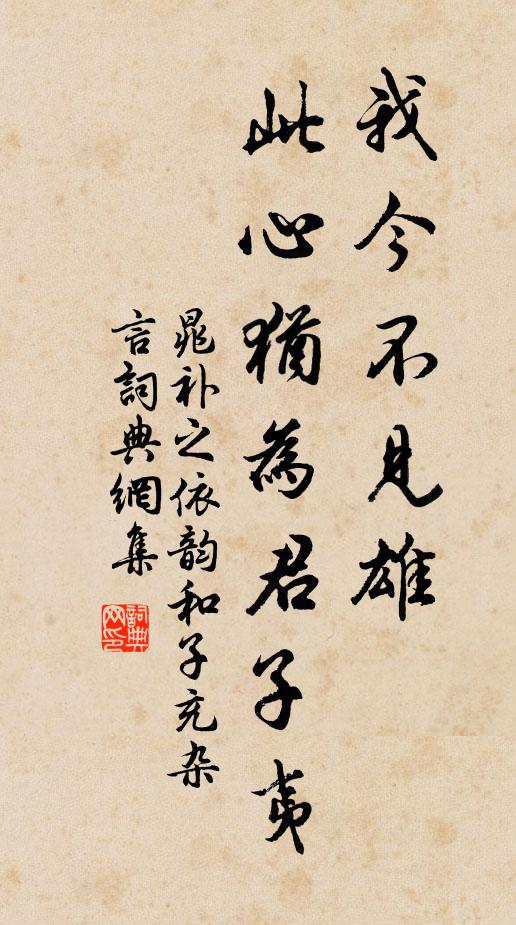 我今不见雄
此心犹為君子夷
晁补之依韵和子充杂
言詞典網集
詞典
网印